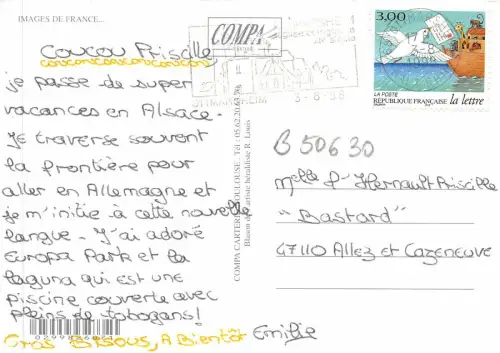 IMAGES DE FRANCE...
Coucou Priscille
coucoucoucoucoucou
je passe de super
vacances en Alsace.
Je traverse souvent
la frontière pour
aller en Allemagne et
je m'initie à cette nouvelle
langue - J'ai adoré
Europa Park et la
laguna qui est une
piscine couverte avec
pleins de tobogans!
Gros Bisous, A Bientôt Emilie
COMPA
3-8-98
3,00
LA POSTE
RÉPUBLIQUE FRANÇAISE la lettre
B 50630
Melle P-Hernault Priscille
"Bastard"
47110 Allez et Cazeneuve
COMPA CARTERIE TOULOUSE - Tél : 05.62.20.63.79
Blason de l'artiste héraldiste R. Louis